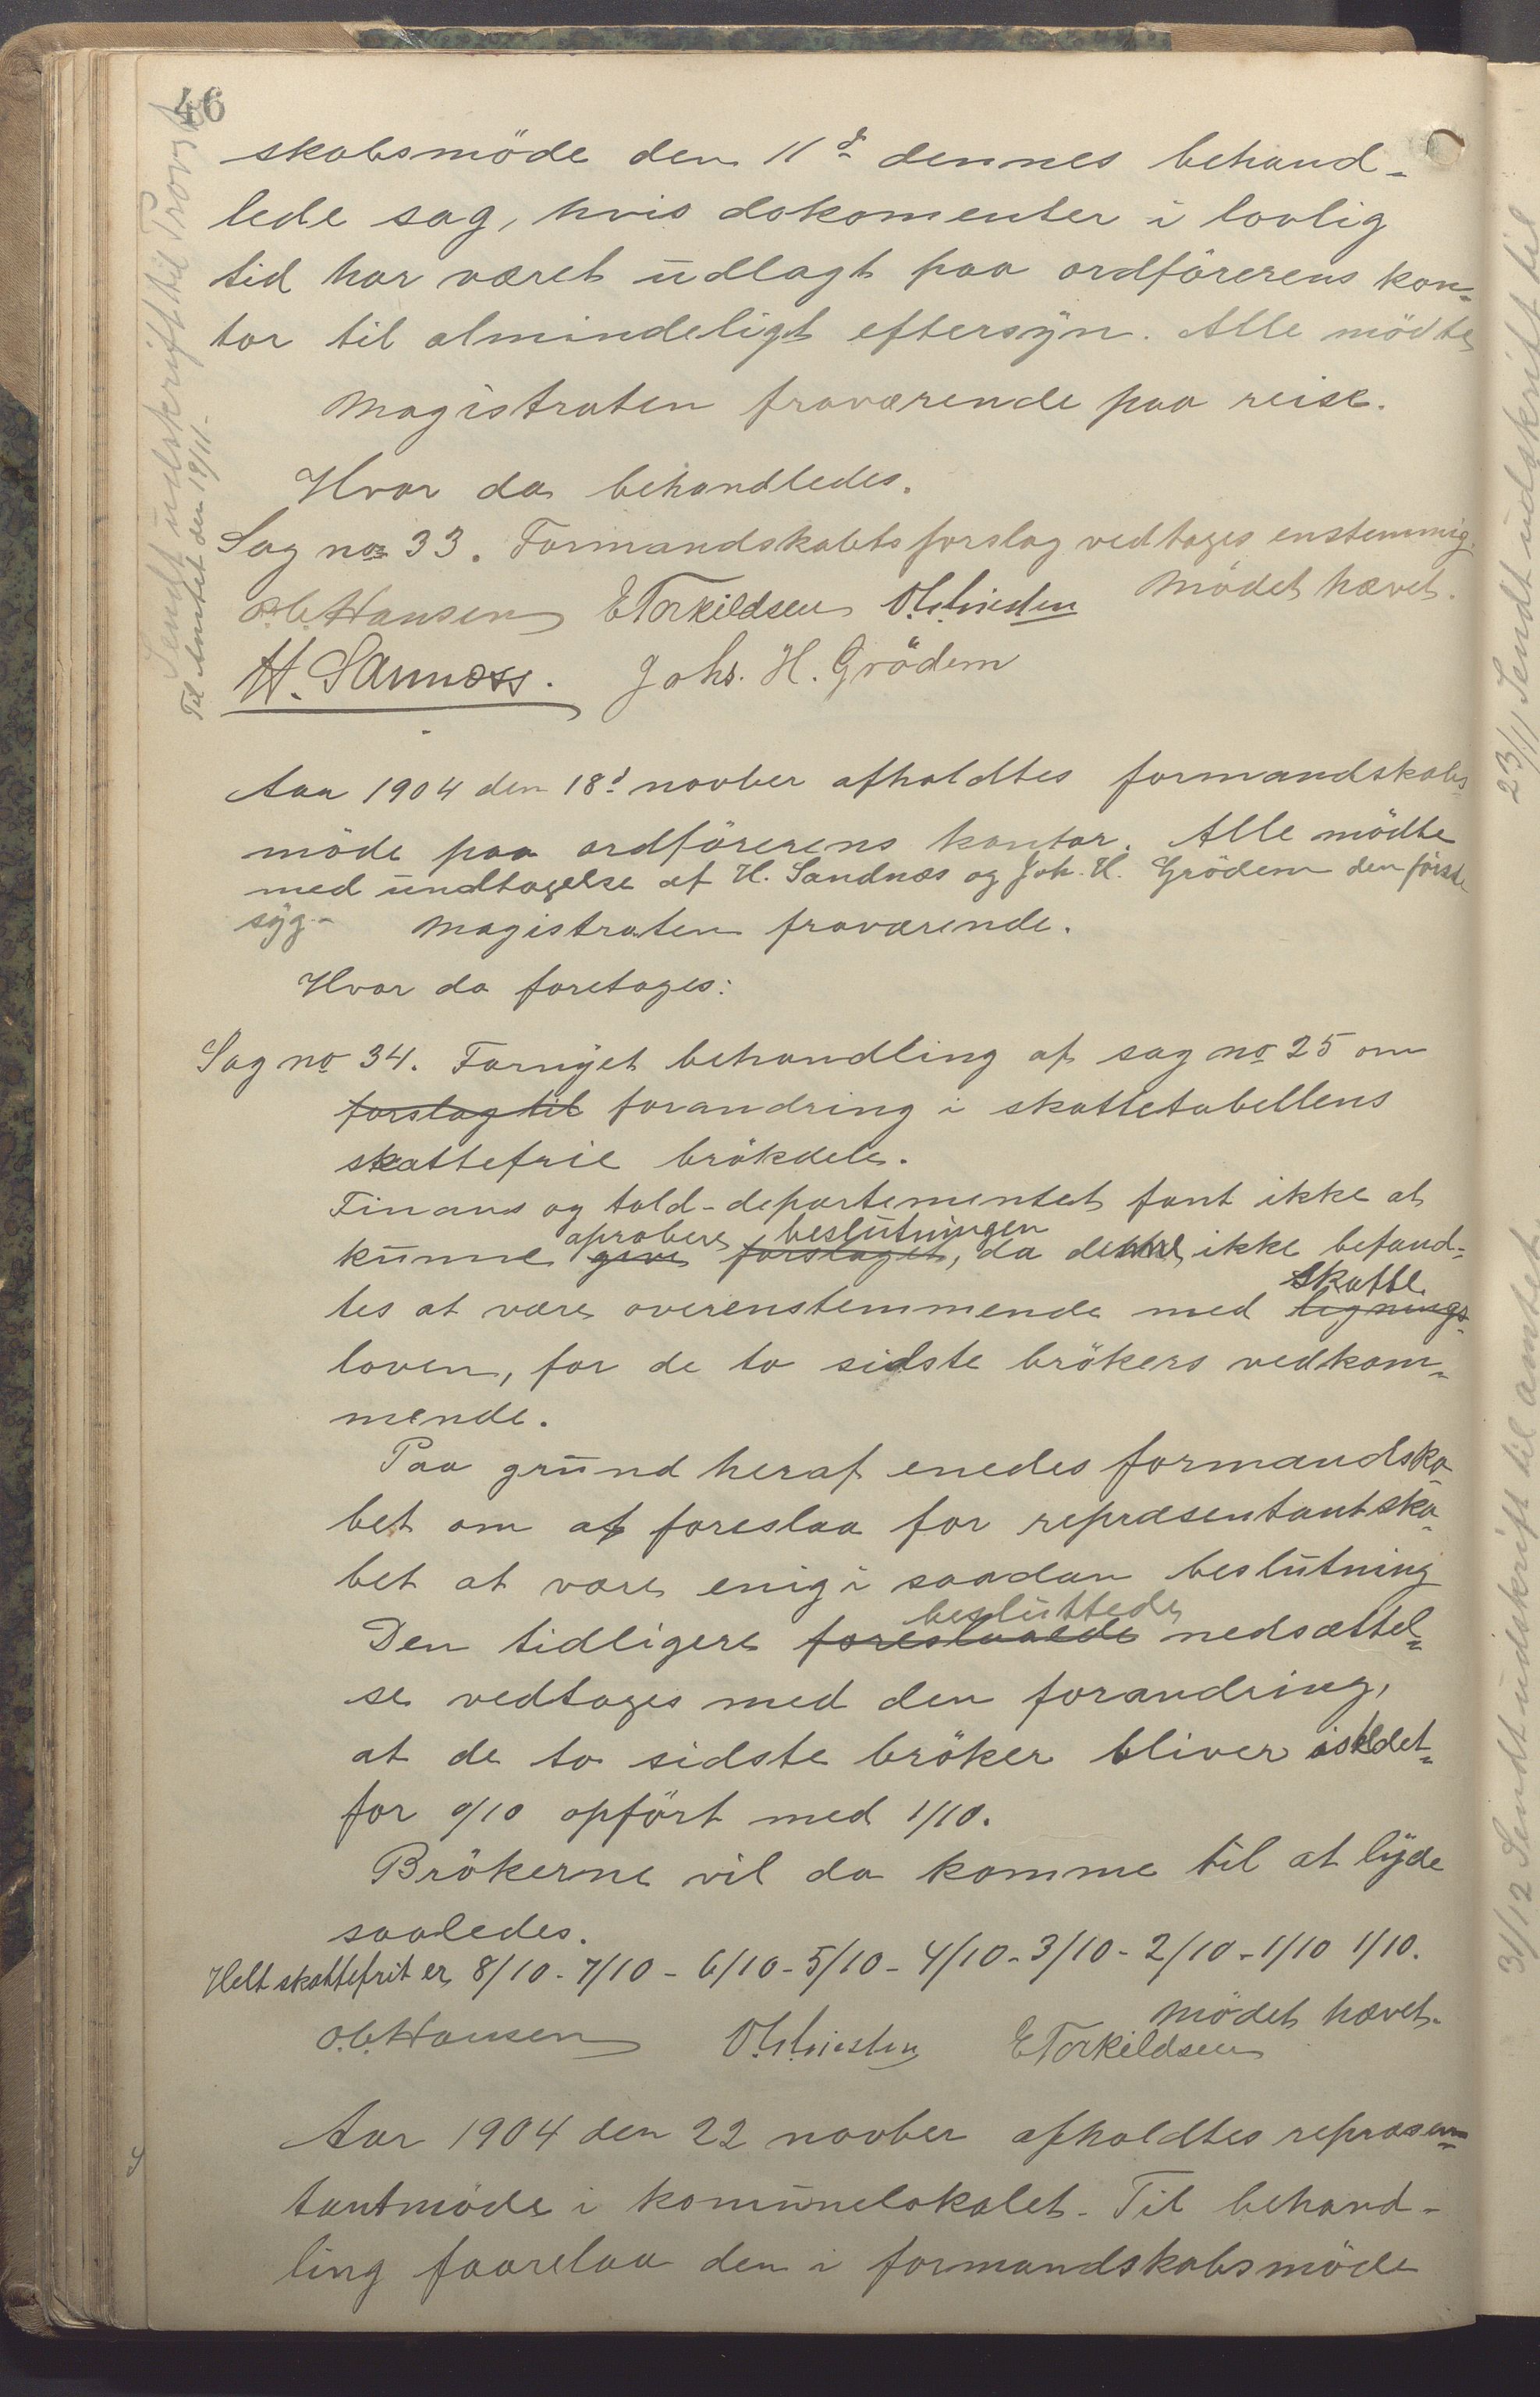 46
skabsmöde den 11d dennes behand-
lede sag, hvis dokomenter i lovlig
tid har været udlagt paa ordförerens kon-
tor til almindeligt eftersyn. Alle mödte
Magistraten fraværende paa reise.
Hvor da behandledes.
Sag no 33. Formandskabets forslag vedtages enstemmig.
Mödet hævet.
O.C. Hansen E Torkildsen
H. Sannæss. Johs. H. Grödem
Aaa 1904 den 18d novber afholdtes formandskabs-
möde paa ordförerens kontor. Alle mödte
med undtagelse af H. Sandnæs og Joh. H. Grödem den förste
syg- Magistraten fraværende.
Hvor da foretages:
Sag no 34. Fornyet behandling af sag no 25 om
forslag til forandring i skattetabellens
skattefrie brökdele.
Finans og told-departementet fant ikke at
aprobere beslutningen
kunne give forslaget, da denne ikke befand-
skatte
tes at være overenstemmende med lignings-
loven, for de to sidste brökers vedkom-
mende.
Paa grund heraf enedes formandska-
bet om at foreslaa for repræsentantska-
bet at være enig i saadan beslutning
besluttede
Den tidligere foreslaaede nedsættel-
se vedtages med den forandring,
at de to sidste bröker bliver istedet-
for 0/10 opfört med 1/10.
Brökerne vil da komme til at lyde
saaledes.
Helt skattefrit er 8/10 - 7/10 - 6/10 - 5/10 - 4/10 - 3/10 - 2/10 - 1/10 1/10.
Mödet hævet.
O.C. Hansen E Torkildsen
Aar 1904 den 22 novber afholdtes repræsen-
tantmöde i komunelokalet. Til behand-
ling faarelaa den i formandskabsmöde
Sendt udskrift til
Til Amtet den 19/11-
23/11 Sendt udskrift til
31/12 Sendt udskrift til amtet